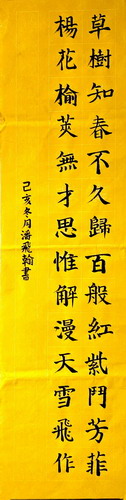 草樹知春不久歸百般紅紫鬥芳菲
楊花榆莢無才思惟解漫天雪飛作
己亥冬月潘飛翰書